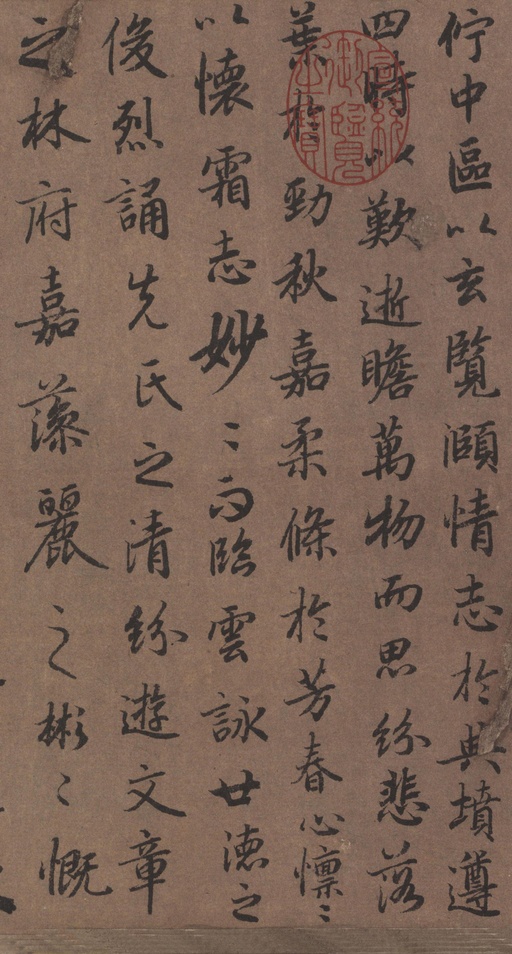 佇中區以玄覽頤情志於典墳遵
四時以歎逝瞻萬物而思紛悲落
葉於勁秋嘉柔條於芳春心懍〻
以懷霜志妙〻而臨雲詠廿德之
俊烈誦先氏之清紛遊文章
之林府嘉藻麗之彬〻慨
宣統御覽之寶